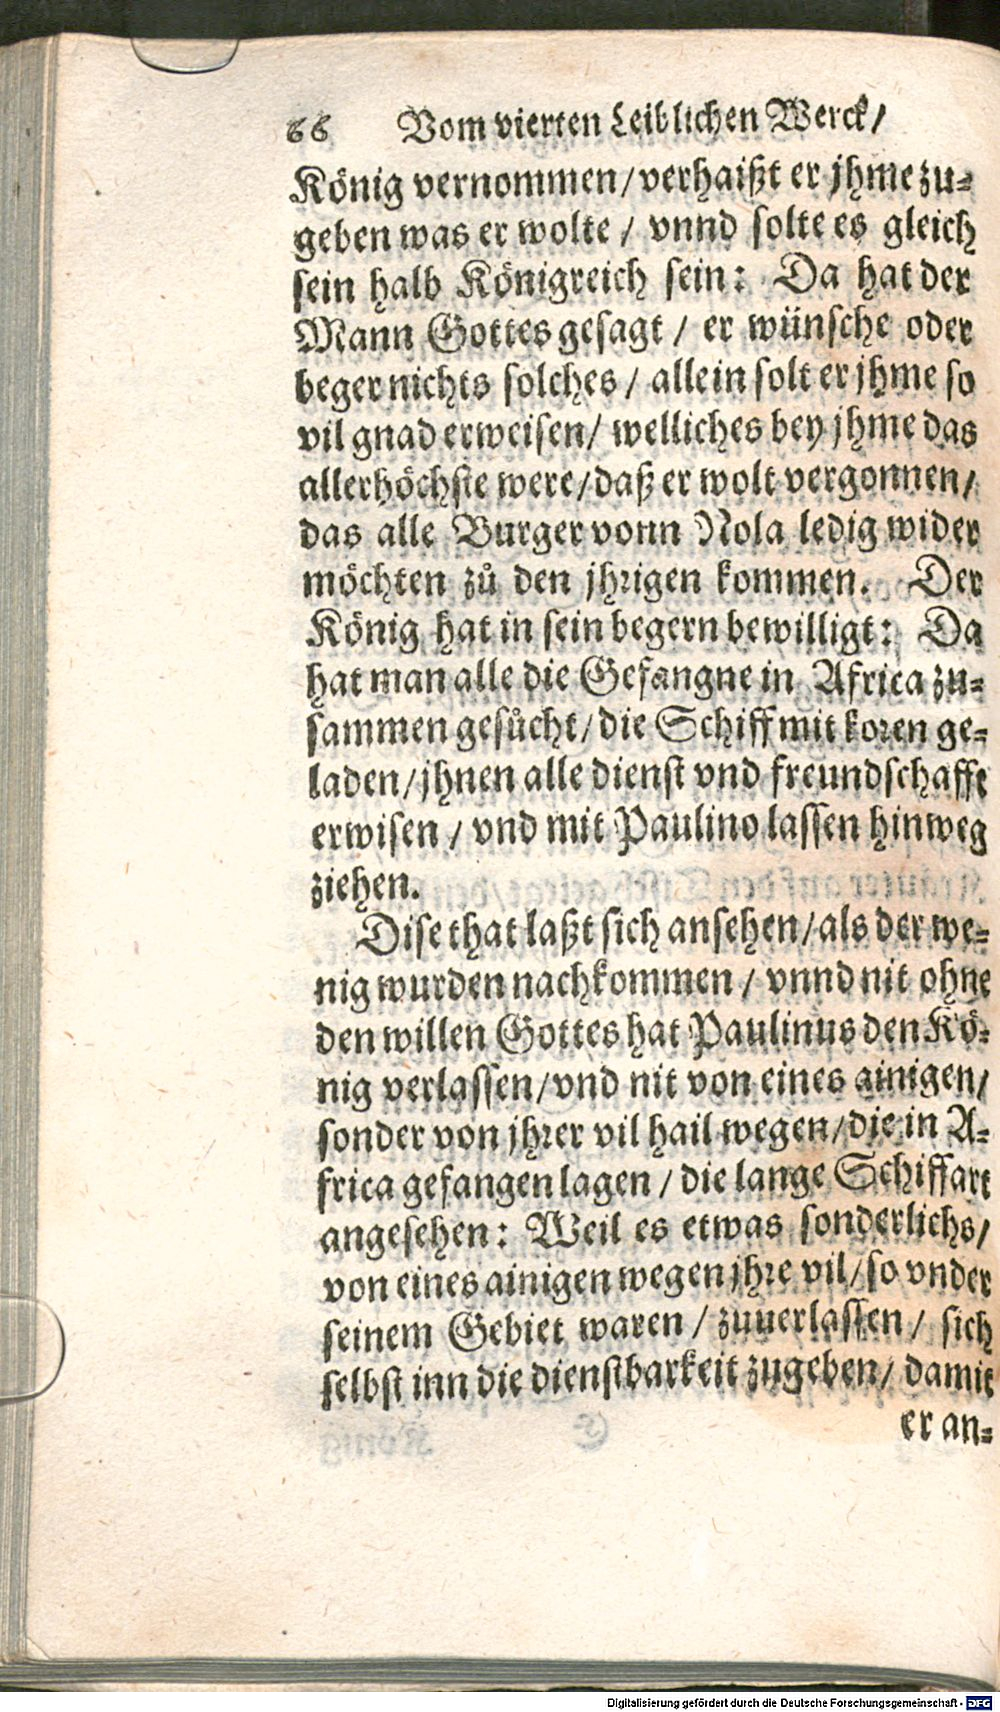 66 Vom vierten Leiblichen Werck/
König vernommen/verhaißt er jhme zu-
geben was er wolte / vnnd solte es gleich
sein halb Königreich sein: Da hat der
Mann Gottes gesagt / er wünsche oder
beger nichts solches / allein solt er jhme so
vil gnad erweisen/ welliches bey jhme das
allerhöchste were/daß er wolt vergonnen/
das alle Burger vonn Nola ledig wider
möchten zů den jhrigen kommen. Der
König hat in sein begern bewilligt: Da
hat man alle die Gefangne in Africa zu-
sammen gesůcht/die Schiff mit koren ge-
laden/jhnen alle dienst vnd freundschafft
erwisen / vnd mit Paulino lassen hinweg
ziehen.
Dise that laßt sich ansehen/als der we-
nig wurden nachkommen / vnnd nit ohne
den willen Gottes hat Paulinus den Kö-
nig verlassen/vnd nit von eines ainigen/
sonder von jhrer vil hail wegen/die in A-
frica gefangen lagen / die lange Schiffart
angesehen: Weil es etwas sonderlichs/
von eines ainigen wegen jhre vil/so vnder
seinem Gebiet waren / zuuerlassen / sich
selbst inn die dienstbarkeit zugeben/ damit
er an-
Digitalisierung gefördert durch die Deutsche Forschungsgemeinschaft - DFG